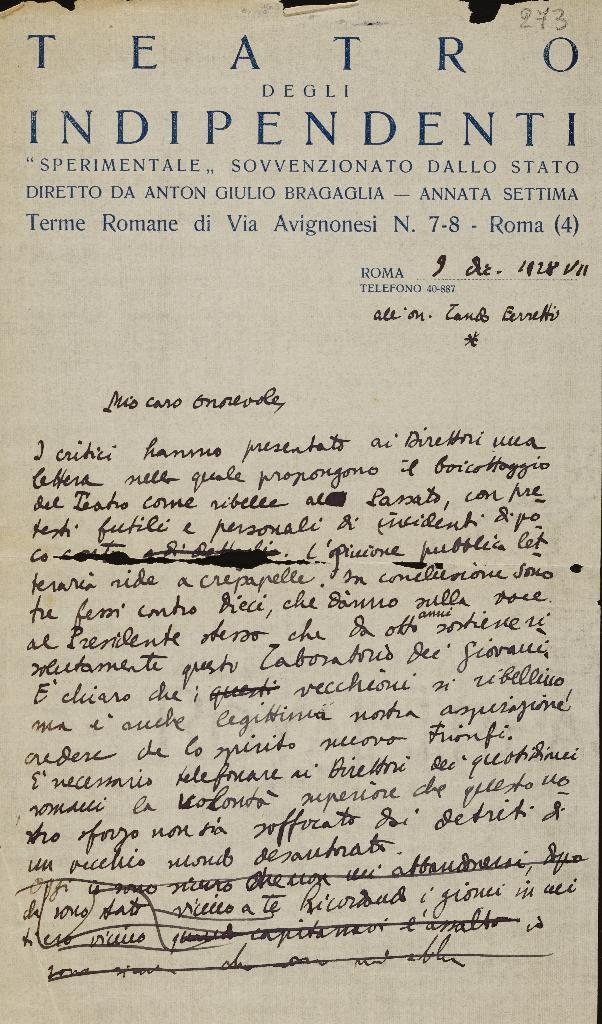 273
TEATRO
DEGLI
INDIPENDENTI
"SPERIMENTALE„ SOVVENZIONATO DALLO STATO
DIRETTO DA ANTON GIULIO BRAGAGLIA — ANNATA SETTIMA
Terme Romane di Via Avignonesi N. 7-8 - Roma (4)
ROMA 9 Dic. 1928 VII
TELEFONO 40-887
all'on. Lando Ferretti
*
Mio caro onorevole,
I critici hanno presentato ai Direttori una
lettera nella quale propongono il boicottaggio
del Teatro come ribelle al Passato, con pre-
testi futili e personali di incidenti di po-
co . L'opinione pubblica let-
teraria ride a crepapelle. In conclusione sono
tre fessi contro dieci, che danno sulla voce
al Presidente stesso che da otto anni sostiene ri-
solutamente questo Laboratorio dei Giovani.
E' chiaro che i questi vecchioni si ribellino,
ma è anche legittima nostra aspirazione
credere che lo spirito nuovo trionfi.
E' necessario telefonare ai Direttori dei quotidiani
romani la volontà superiore che questo no-
stro sforzo non sia soffocato dai detriti di
un vecchio mondo desautorato.
Oggi io sono sicuro che non mi abbandonerai, dopo
sono stato vicino a te Ricordando i giorni in cui
ti ero vicino quando capitanavi l'assalto io
sono che non mi